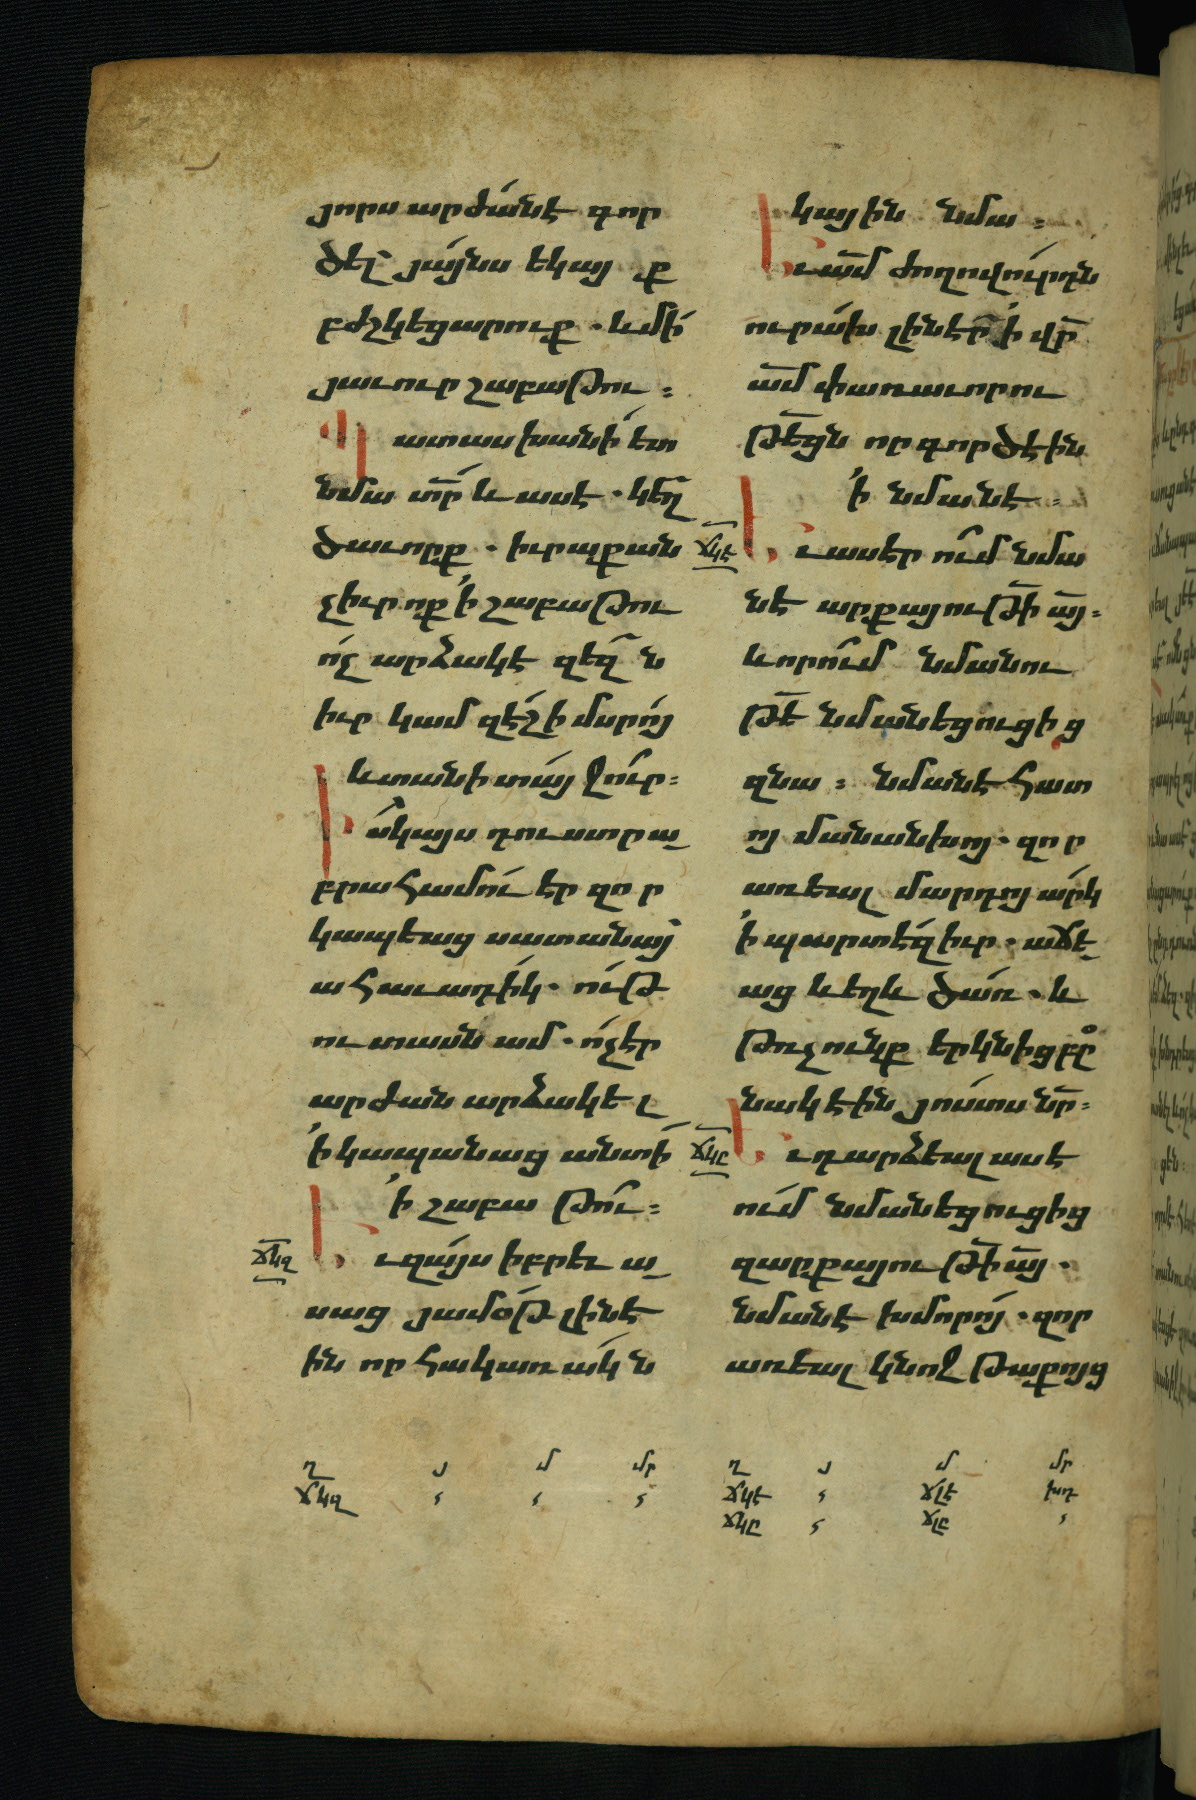 յորս արժանէ գոր
ծել՝ յայնս եկայ ք
բժշկեցարուք . և մի՛
յաւուր շաբաթու :
Պատասխանի ետ
նմա տր̄ և ասէ . կեղ̄
ծաւորք . իւրաքան
չիւր ոք ՚ի շաբաթու
ո՛չ արձակէ զեզն
իւր կամ զէշ ի մսրոյ
և տանի տայ ջուր :
Իսկ այս դուստր ա
բրահամու էր զոր
կապեաց սատանայ
ահաւադիկ . ութ
ուտասն ամ . ո՛չ էր
արժան արձակել
՚ի կապանաց անտի
՚ի շաբաթու :
ճկզ Եւ զայս իբրև ա
սաց յամօթ լինէ
ին որ հակառակն
կային նմա :
Եւ ամ̄ ժողովուրդն
ուրախ լինէր ՚ի վր̄
ամ̄ փառաւորու
թե̄ցն որ գործէին
՚ի նմանէ :
ճկէ Եւ ասէր ում նմա
նէ արքայութի̄ այ̄ :
և որում նմանու
թե̄ նմանեցուցից
զնա : նմանէ հատ
ոյ մանանխոյ . զոր
առեալ մարդոյ արկ
՚ի պարտէզ իւր . աճե
աց և եղև ծառ . և
թռչունք երկնից բը
նակէին յոստս նր̄ :
ճկը Եւ դարձեալ ասէ
ում նմանեցուցից
զարքայութի̄ այ̄ .
նմանէ խմորոյ . զոր
առեալ կնոջ թաքոյց
ղ յ մ մր ղ յ մ մր
ճկզ ՛ ՛ ՛ ճկէ ՛ ճլէ խդ
ճկը ՛ ճլը ՛